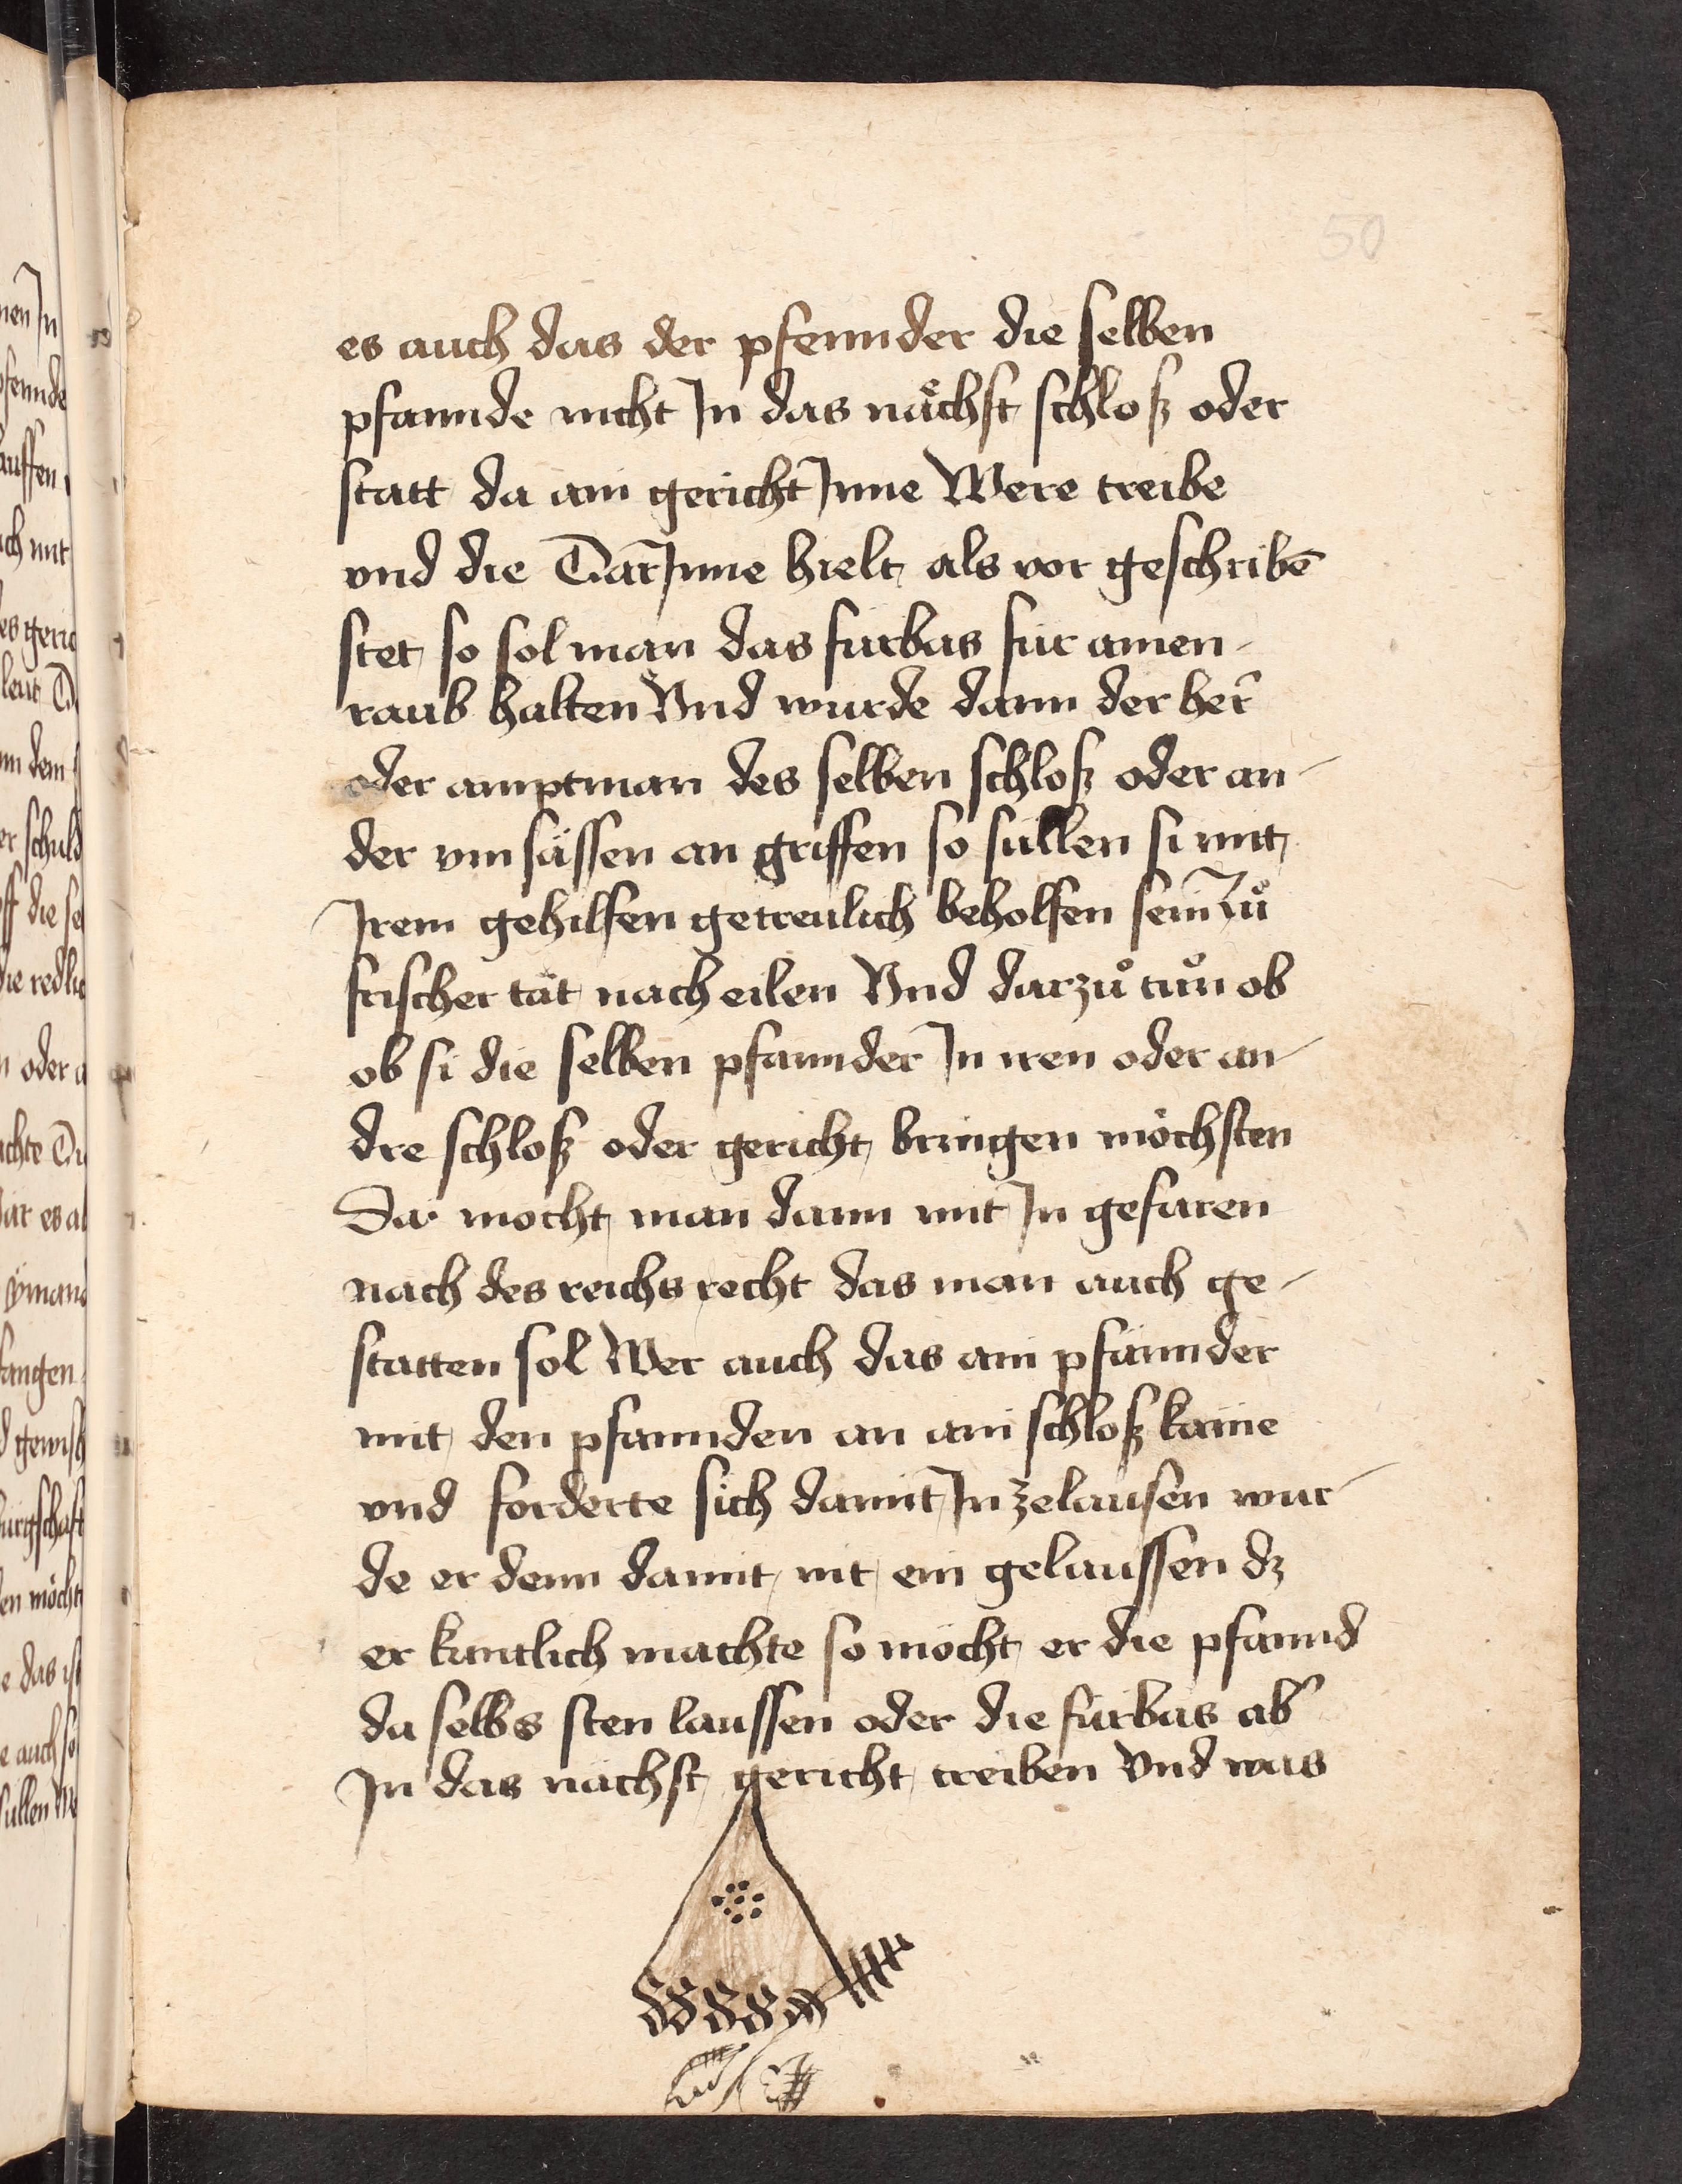 50
es auch das der pfennder die selben
pfannde nicht Jn das nåchst schloß oder
statt da ain gericht Jnne Were treibe
vnd die Dar Jnne hielt als vor geschribē
stet so sol man das fürbas für ainen
raub halten Vnd wurde dann der her̄
oder amptman des selben schloß oder an-
der vmsässen an griffen so süllen si mit
Jrem gehilfen getreulich beholfen sein Zů
frischer tät nach eilen Vnd darzů tůn ob
ob si die selben pfannder Jn iren oder an-
dre schloß oder gericht bringen möchsten
Da mocht man dann mit Jn gefaren
nach des reichs recht das man auch ge-
statten sol Wer auch das ain pfännder
mit den pfannden an ain schloß käme
vnd forderte sich damit Jn zelausen wur-
de er denn damit nit ein gelaussen dz
er kuntlich machte so möcht er die pfannd
da selbs sten laussen oder die fürbas ab
Jn das nächst gericht treiben Vnd was